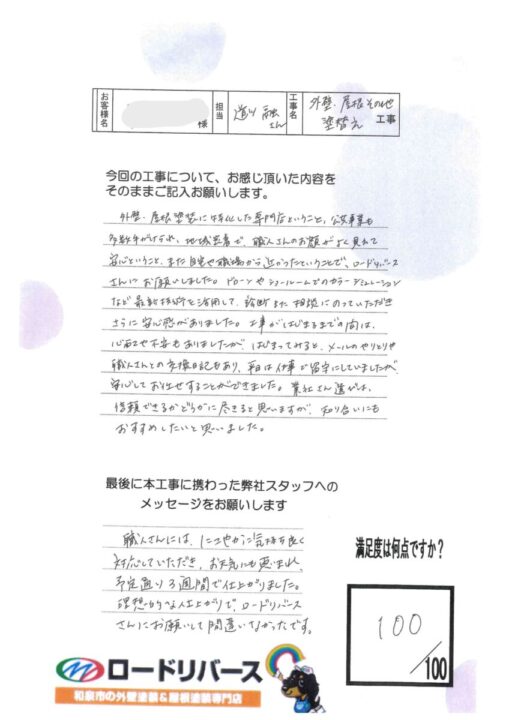 お客様名 様 担当 道川 融 さん 工事名 外壁・屋根 その他 塗替え 工事
今回の工事について、お感じ頂いた内容を
そのままご記入お願いします。
外壁・屋根塗装に特化した専門店ということ、公共事業も
多数手がけられ、地域密着で、職人さんのお顔がよく見れて
安心ということ、また自宅や職場から近かったということで、ロードリバース
さんにお願いしました。ドローンやショールームでのカラーシミュレーション
など最新技術を活用して、診断また相談にのっていただき
さらに安心感がありました。工事がはじまるまでの間は、
心配や不安もありましたが、はじまってみると、メールのやりとりや
職人さんとの交換日記もあり、平日は仕事で留守にしていましたが、
安心してお任せすることができました。業社さん選びは、
信頼できるかどうかに尽きると思いますが、知り合いにも
おすすめしたいと思いました。
最後に本工事に携わった弊社スタッフへの
メッセージをお願いします
職人さんには、にこやかに気持ち良く
対応していただき、お天気にも恵まれ、
予定通り3週間で仕上がりました。
理想的な仕上がりで、ロードリバース
さんにお願いして間違いなかったです。
満足度は何点ですか?
100
/100
ロードリバース
和泉市の外壁塗装&屋根塗装専門店